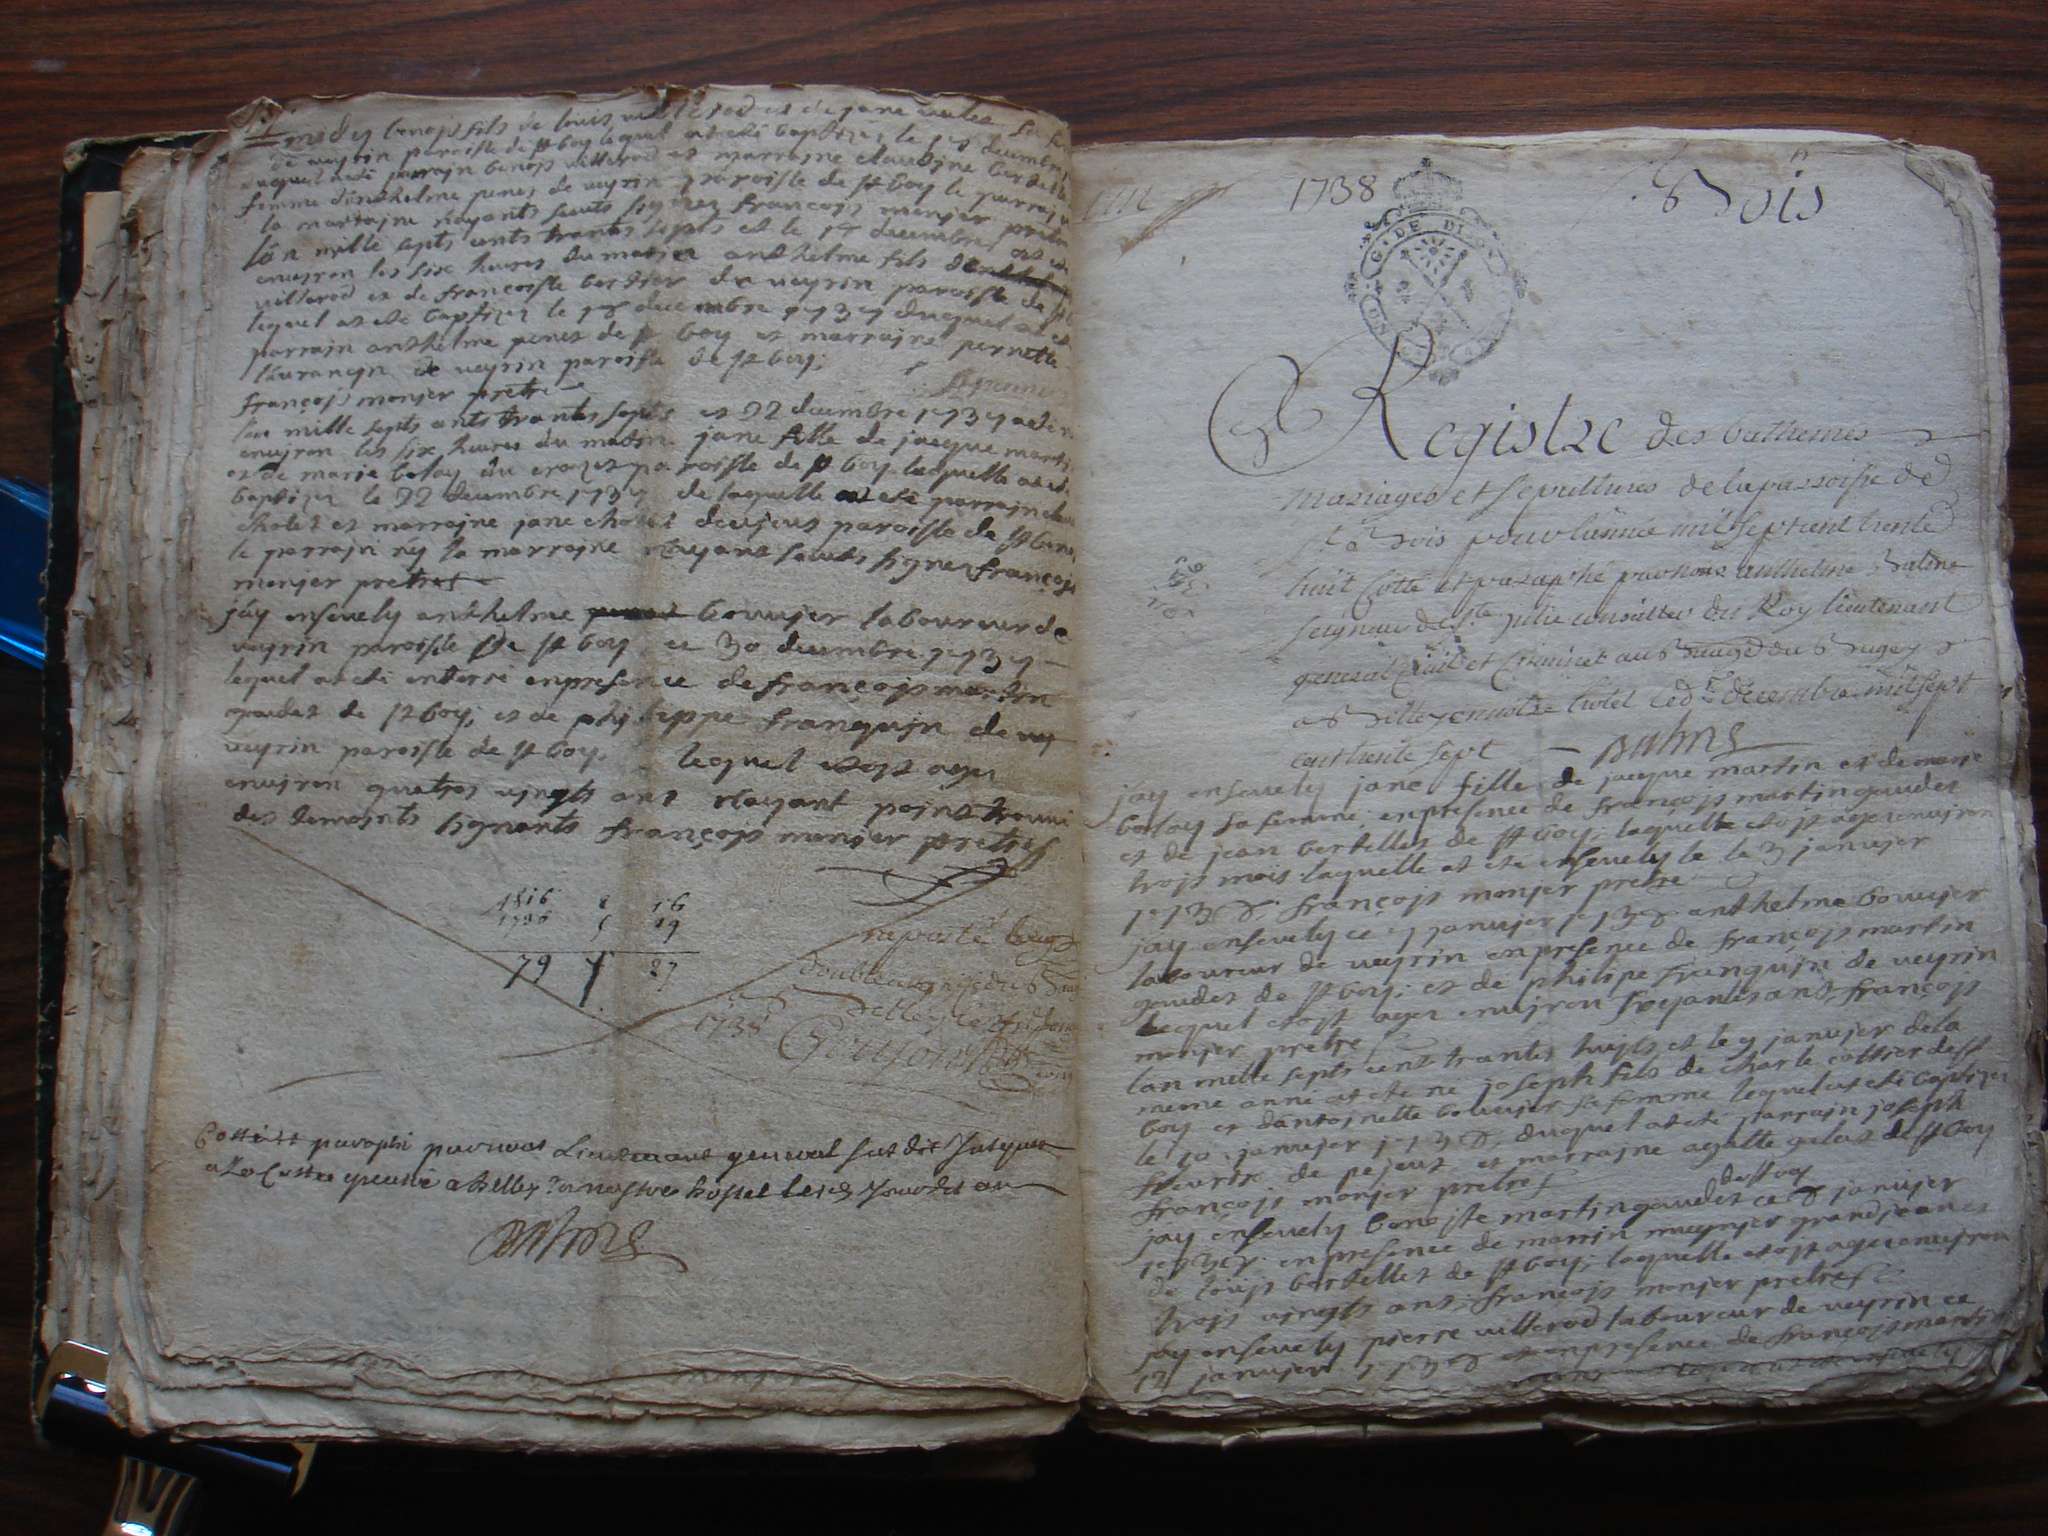 midy benoist fils de louis villerod et de jane
de veyrin paroisse de st boy lequel at esté baptizez le 18 decembre
duquel at esté parrain benoist villerod et marraine claudine bertelle
femme danthelme penet de veyrin paroisse de st boy le parrain
la marraine n'ayants sceuts signez françois monjer pretre
l'an mille septs cents trants septs et le 17 decembre at esté
environ les six heures du matin anthelme fils
villerod et de françoise bertier de veyrin paroisse de st
lequel at esté baptizez le 18 decembre 1737 duquel at esté
parrain anthelme penet de st boy et marraine pernette
laurancin de veyrin paroisse de st boy;
françois monjer pretre
l'an mille septs cents trants septs et 22 decembre 1737
environ les six heures du matin jane fille de jacque martin
et de marie bolay du paroisse de st boy laquelle at esté
baptizez le 22 decembre 1737 de laquelle at esté parrain
cholet et marraine jane cholet paroisse de st
le parrain n'y la marraine n'ayant sceuts signez françois
monjer pretres
j'ay ensevely anthelme bouvyer laboureur de
veyrin paroisse de st boy ce 30 decembre 1737
lequel at esté enterré en presence de françois martin
gaudet de st boy; et de philippe franquin de vey
veyrin paroisse de st boy. lequel etoist agez
environ quatres vingts ans n'ayant point trouvé
des temoints signants françois monjer pretres
1816 8 16
1736 5 19
79 7 27
raporté
double au greffe du
1738
Cotté et paraphé par nous Lieutenant general sus dit
a Belley en nostre hostel lesd jour et an
Balme
1738
Bois
G. DE DIJON
Registre des bathemes
mariages et sepultures de la parroisse de
St Bois pour l'année mil sept cent trente
huit Cotté et paraphé par nous anthelme Balme
seigneur de Ste Julie conseiller du Roy lieutenant
general Civil et Criminel au Bailliage du Bugey
a Belley en notre hotel le decembre mil sept
cent trente sept Balme
j'ay ensevely jane fille de jacque martin et de marie
bolay sa femme en presence de françois martin gaudet
et de jean bertellet de st boy; laquelle etoist agez environ
trois mois laquelle at esté ensevely le 3 janvier
1738, françois monjer pretre
j'ay ensevely ce 7 janvjer 1738 anthelme bouvyer
laboureur de veyrin en presence de françois martin
gaudet de st boy; et de philipe franquin de veyrin
lequel etoist agez environ soixante ans, françois
monjer pretre
l'an mille septs cent trants huits et le 9 janvjer de la
meme anné at esté né joseph fils de charle cottier de st
boy et d'antoinette bouvyer sa femme lequel at esté baptizez
le 10 janvjer 1738, duquel at esté parrain joseph
de et marraine agathe de st boy
françois monjer pretres
de st boy
j'ay ensevely benoiste martin gaudet ce 8 janvjer
1738 en presence de
de louis bertellet de st boy; laquelle etoist agez environ
trois vingts ans; françois monjer pretres
j'ay ensevely pierre villerod laboureur de veyrin ce
12 janvjer 1738 en presence de françois martin